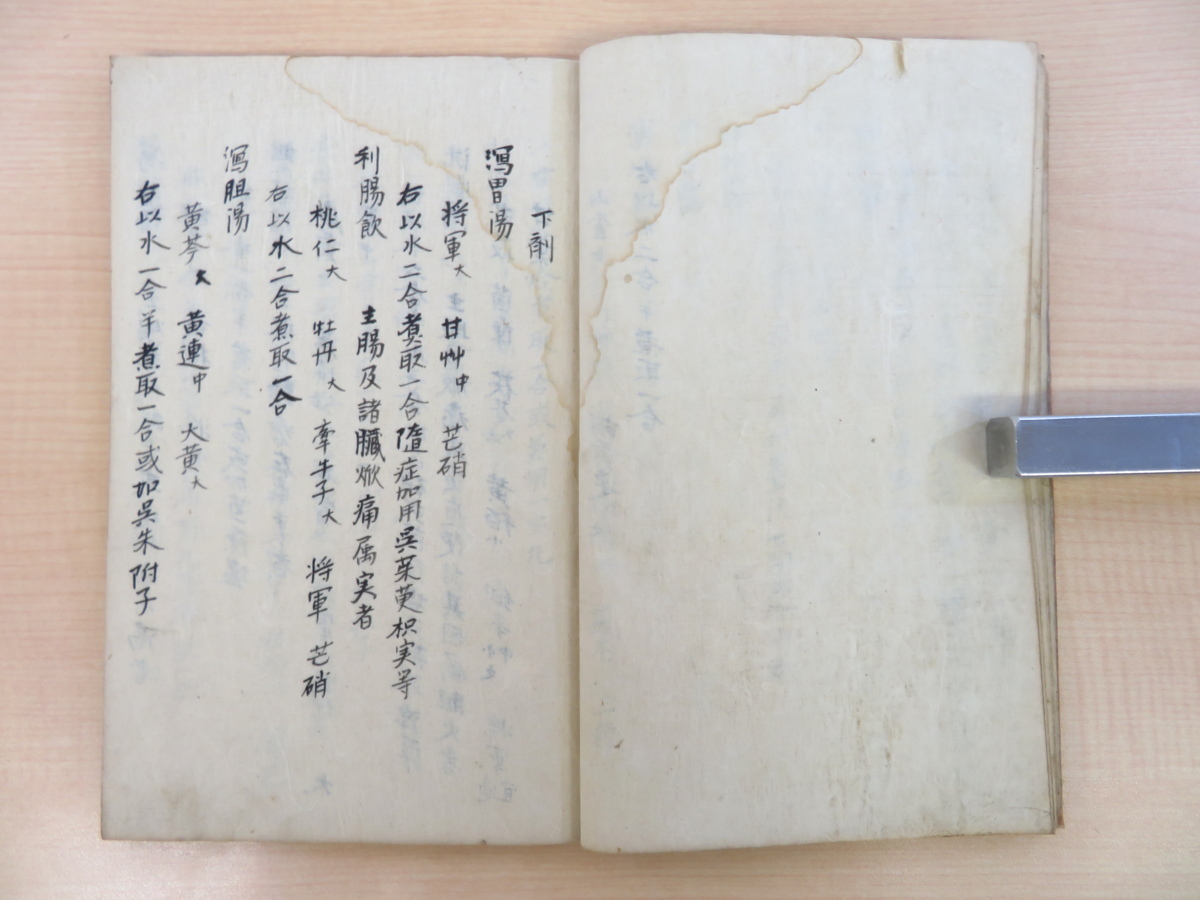 下劑
瀉胃湯
将軍大 甘艸中 芒硝
右以水二合煮取一合隨症加用呉茱萸枳実等
利腸飲 主腸及諸臓焮痛属実者
桃仁大 牡丹大 牽牛子大 将軍 芒硝
右以水二合煮取一合
瀉胆湯
黄芩大 黄連中 大黄大
右以水一合半煮取一合或加呉朱附子